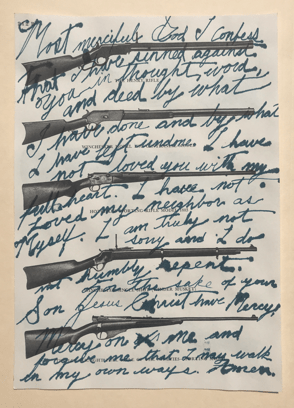 Most merciful God I Confess
that I have sinned against
you in thought, word,
and deed by what
I have done and by what
I have left undone. I have
not loved you with my
full heart. I have not
loved my neighbor as
Myself. I am truly not
sorry and I do
not humbly repent.
the sake of your
Son Jesus Christ have Mercy.
Mercy on me and
forgive me that I may walk
in my own ways. Amen.